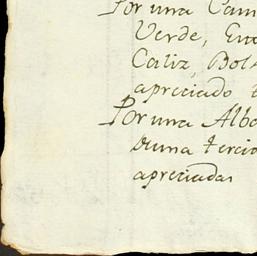 Por una Cam
Verde, Eve
Caliz, Bols
apreciado
Por una Alba
Duna tercio
apreciadas